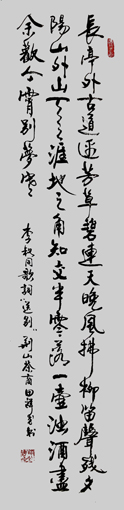 長亭外古道邊芳草碧連天晚風拂柳笛聲残夕
陽山外山天之涯地之角知交半零落一壺濁酒盡
余歡今宵別夢寒
李叔同歌詞"送别"荆山